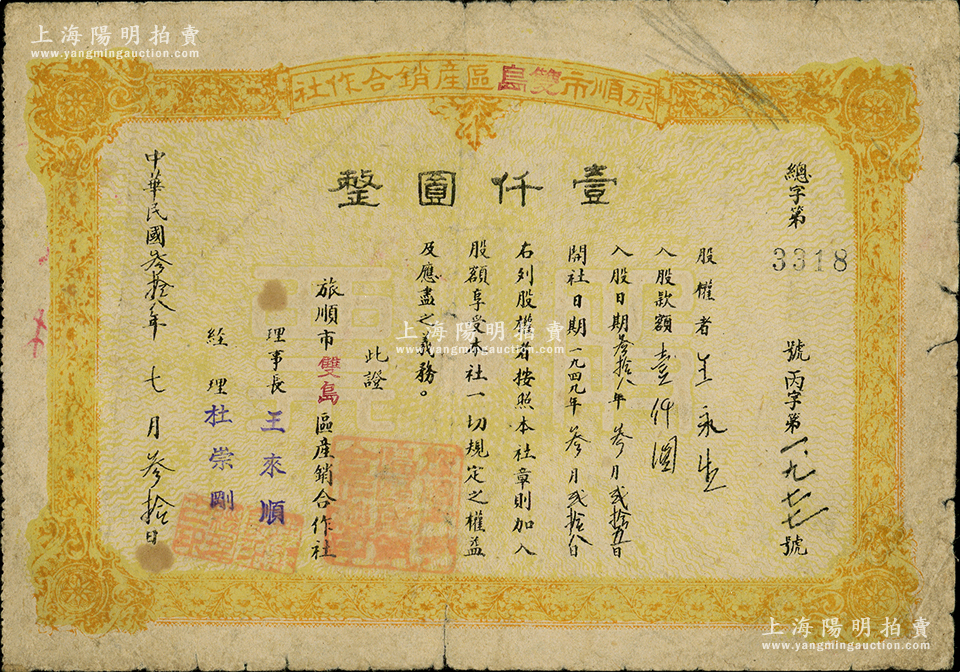 上海陽明拍賣
www.yangmingauction.com
旅順市雙島區產銷合作社
壹仟圓整
總字第3318號丙字第一、九七七號
股權者王永生
入股款額壹仟圓
入股日期叁拾八年叁月貳拾五日
開社日期一九四九年叁月貳拾八日
右列股權者按照本社章則加入
股額享受本社一切規定之權益
及應盡之義務。
此證
旅順市雙島區產銷合作社
理事長王來順
経理杜崇剛
中華民國叁拾八年七月叁拾日
上海陽明拍賣
www.yangmingauction.com
上海陽明拍賣
www.yangmingauction.com